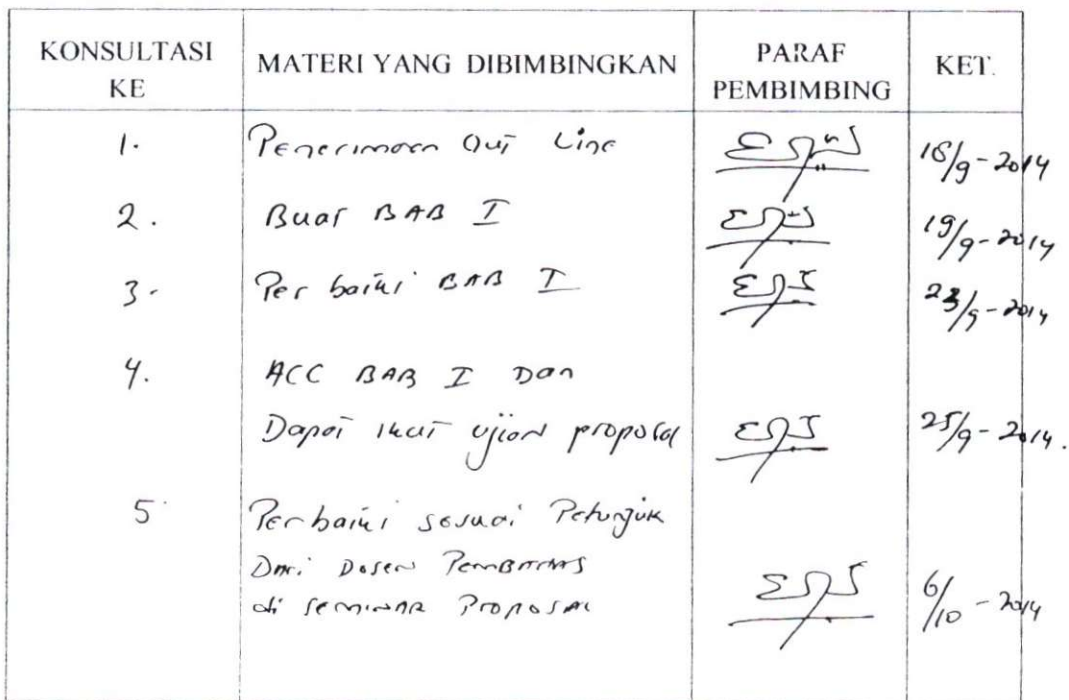 KONSULTASI KE MATERI YANG DIBIMBINGKAN PARAF PEMBIMBING KET.
1. Penerimaan Out Line 18/9-2014
2. Buat BAB I 19/9-2014
3. Perbaiki BAB I 23/9-2014
4. ACC BAB I Dan
Dapat ikut ujian proposal 25/9-2014.
5 Perbaiki sesuai Petunjuk
Dari Dosen Pembahas
di seminar Proposal 6/10-2014